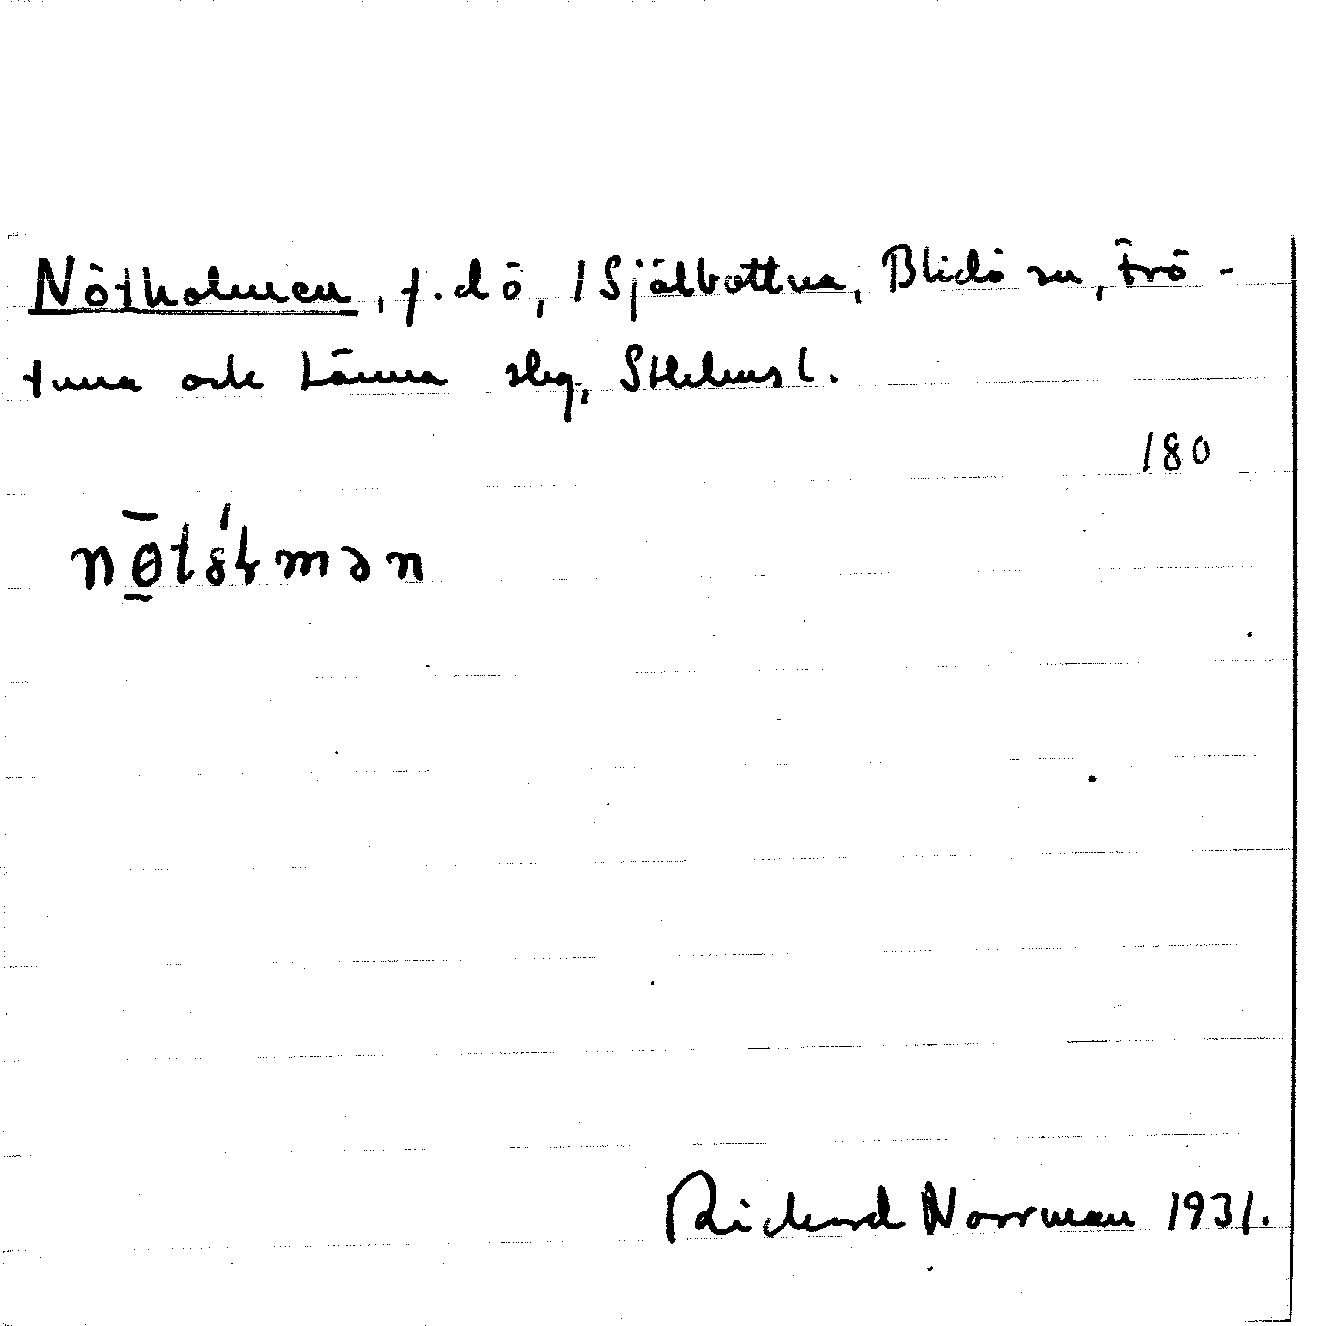 Nötholmen, f.d ö, 1 Själbottna, Blidö sn, Frö-
tuna och Länna slg, Sthlms l.
180
nø̱̄tȣ́ɫmən
Rickard Norrman 1931.